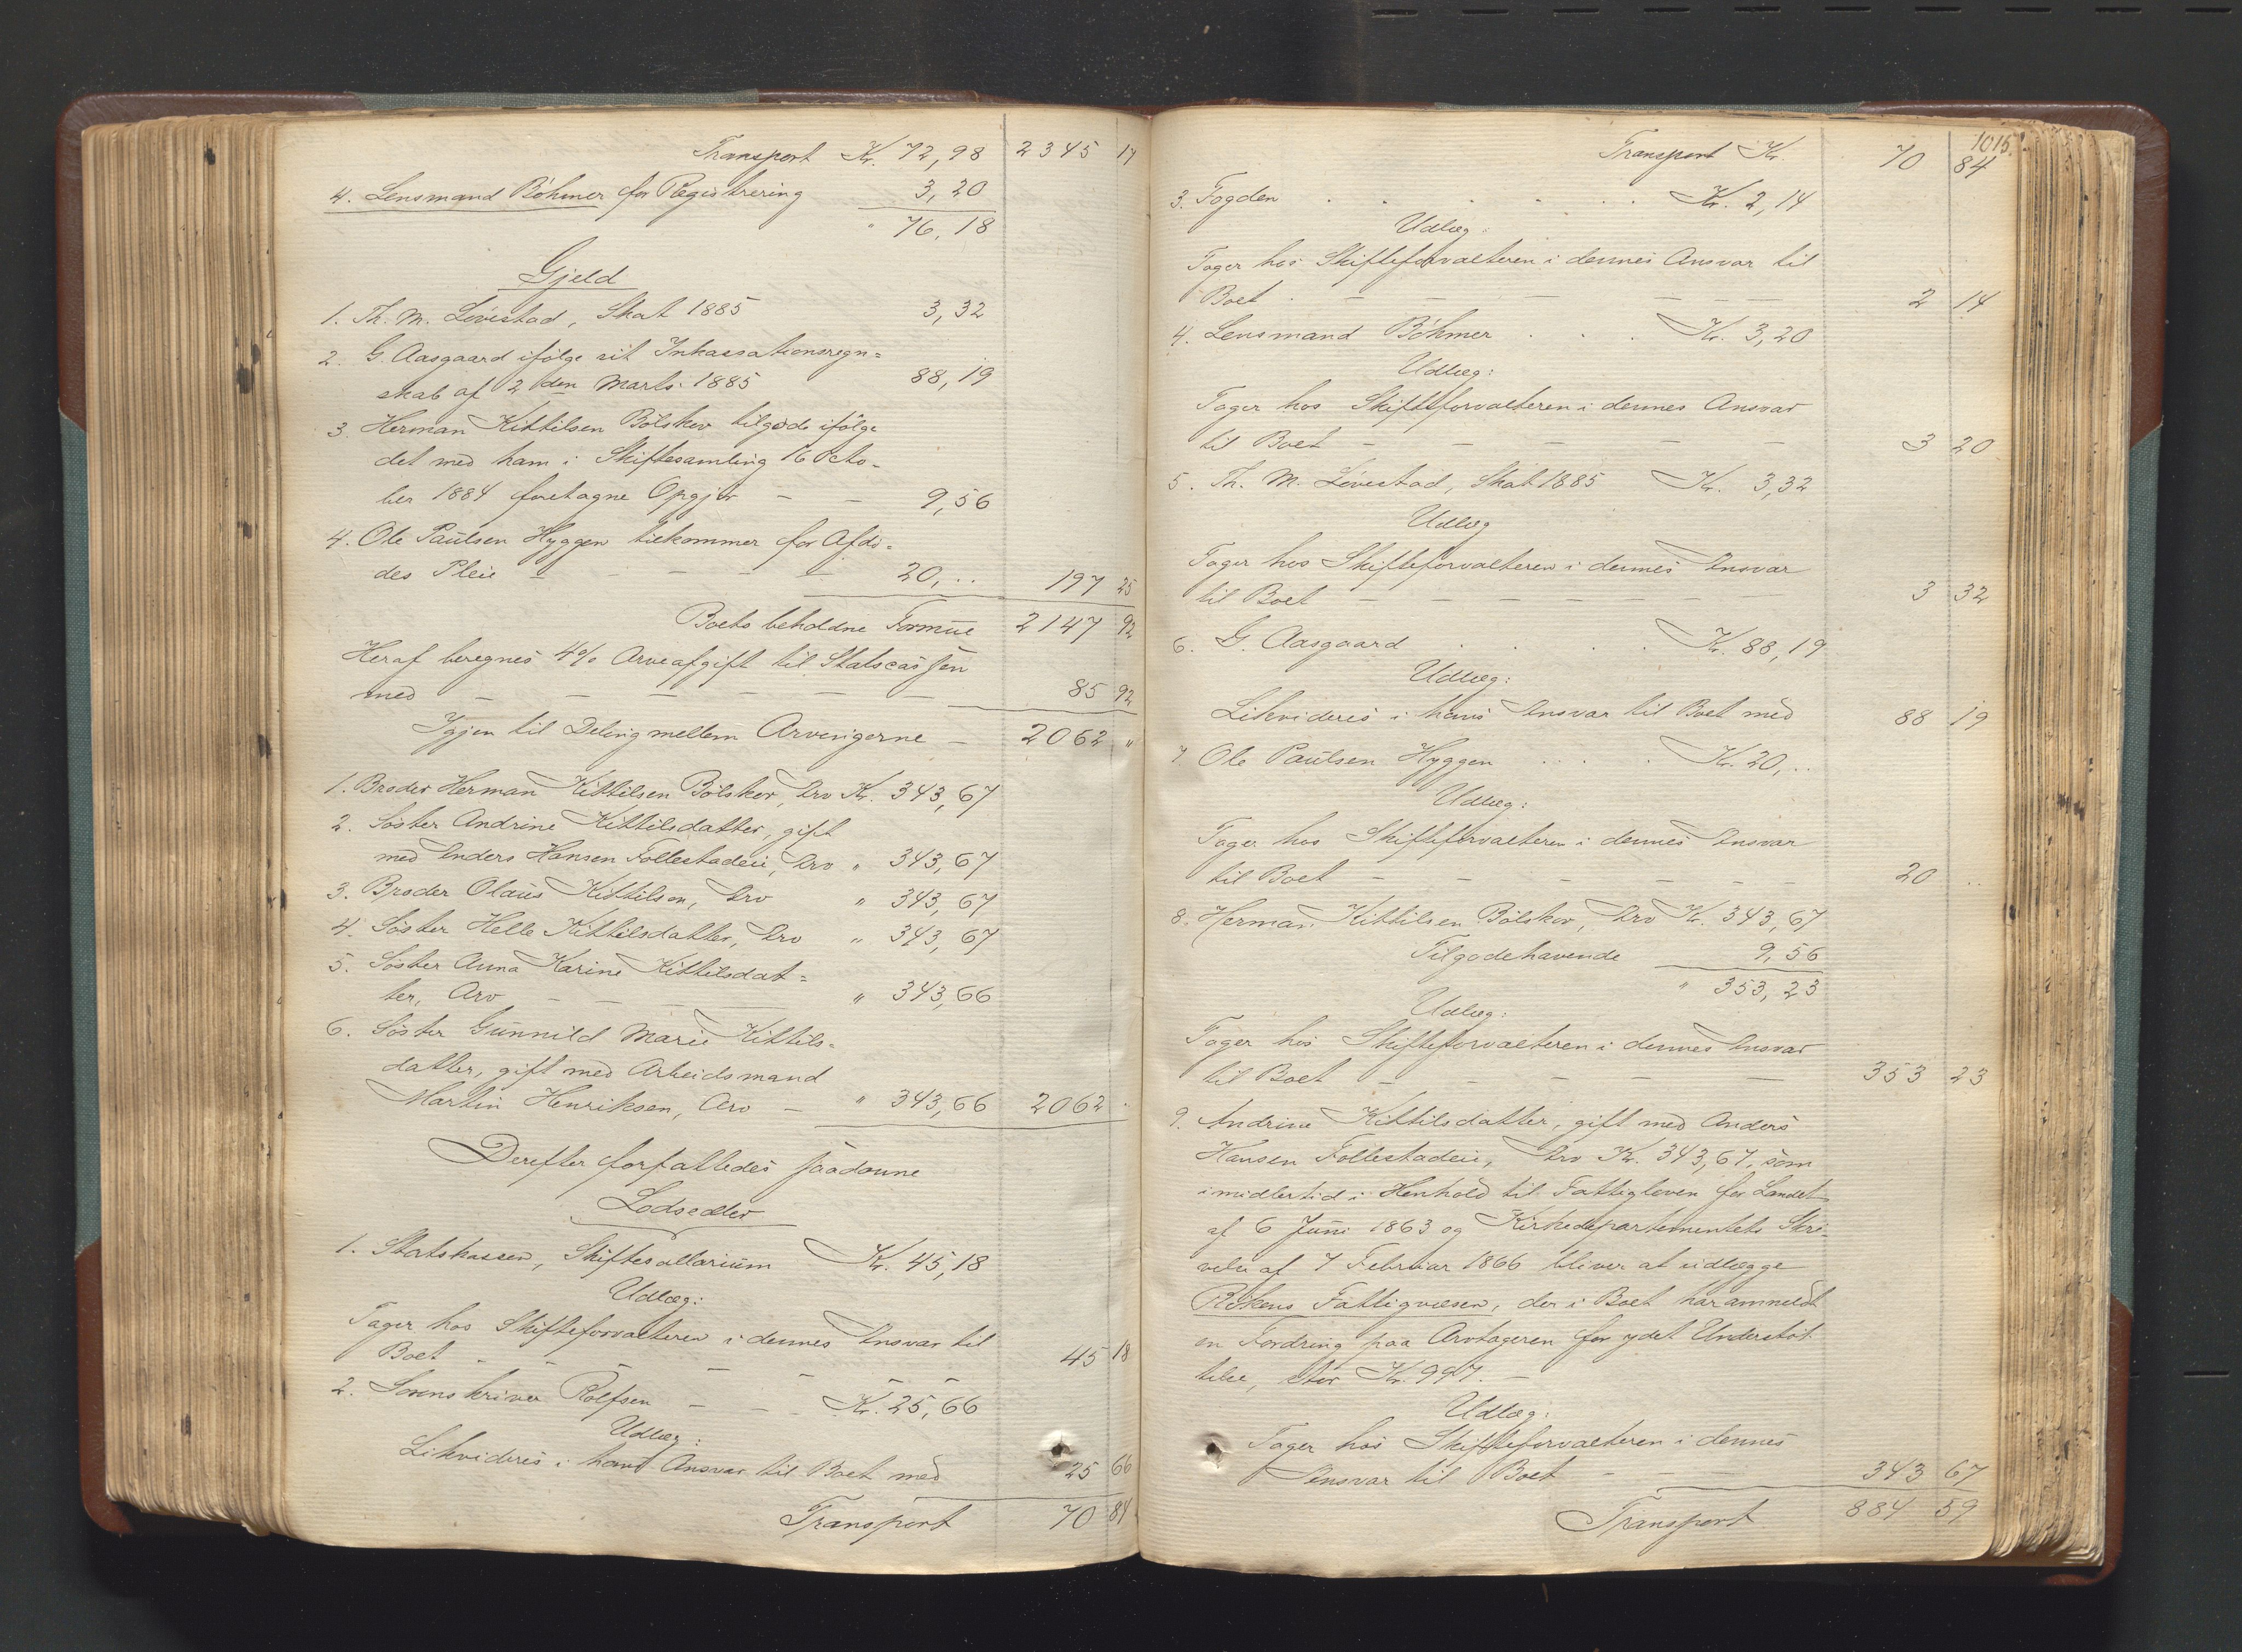 Transport Kr. 72,98 2345 17
4. Lensmand Böhmer for Registrering 3,20
" 76,18
Gjeld
1. Th. M. Lövestad, Skat 1885 3,32
2. G. Aasgaard ifölge sit Inkassationsregn=
skab af 2den Marts 1885 88,19
3. Herman Kittilsen Bölsker tilgode ifölge
det med ham i Skiftesamling 16 Octo-
ber 1884 foretagne Opgjör — — 9,56
4. Ole Paulsen Hyggen tilkommer for Afdö=
des Pleie — — — — — 20,.. 197 25
Boets beholdne Formue 2147 92
Heraf beregnes 4% Arveafgift til Statscassen
med — — — — — — 85 92
Igjen til Deling mellem Arvingerne — 2062 "
1. Broder Herman Kittilsen Bölsker, Arv Kr. 343,67
2. Söster Andrine Kittilsdatter, gift
med Anders Hansen Follestadeie, Arv " 343,67
3. Broder Olaus Kittilsen, Arv " 343,67
4. Söster Helle Kittilsdatter, Arv " 343,67
5. Söster Anna Karine Kittilsdat=
ter, Arv — — — — " 343,66
6. Söster Gunnild Marie Kittils=
datter, gift med Arbeidsmand
Martin Henriksen, Arv — " 343,66 2062 .
Derefter forfattedes saadanne
Lodsedler
1. Statskassen, Skiftesallarium Kr. 45,18
Udlæg:
Tager hos Skifteforvalteren i dennes Ansvar til
Boet — — — — — — 45 18
2. Sorenskriver Rolfsen — — Kr. 25,66
Udlæg:
Likvideres i hans Ansvar til Boet med 25 66
Transport 70 84
1015.
Transport Kr. 70 84
3. Fogden . . . . . . Kr. 2,14
Udlæg:
Tager hos Skifteforvalteren i dennes Ansvar til
Boet . — — — — — — 2 14
4. Lensmand Böhmer . . . Kr. 3,20
Udlæg:
Tager hos Skifteforvalteren i dennes Ansvar
til Boet — — — — — 3 20
5. Th. M. Lövestad, Skat 1885 Kr. 3,32
Udlæg
Tager hos Skifteforvalteren i dennes Ansvar
til Boet — — — — — — — 3 32
6. G. Aasgaard . . . . Kr. 88,19
Udlæg:
Likvideres i hans Ansvar til Boet med 88 19
7. Ole Paulsen Hyggen . . . . Kr. 20,..
Udlæg:
Tager hos Skifteforvalteren i dennes Ansvar
til Boet — — — — — — — 20 ..
8. Herman Kittilsen Bölsker, Arv Kr. 343,67
Tilgodehavende 9,56
" 353,23
Udlæg:
Tager hos Skifteforvalteren i dennes Ansvar
til Boet — — — — — 353 23
9. Andrine Kittilsdatter, gift med Anders
Hansen Follestadeie, Arv Kr. 343,67, som
imidlertid i Henhold til Fattigloven for Landet
af 6 Juni 1863 og Kirkedepartementets Skri-
velse af 7 Februar 1866 bliver at udlægge
Rökens Fattigvæsen, der i Boet har anmeldt
en Fordring paa Arvtageren for ydet Understöt-
telse, stor Kr. 997. —
Udlæg:
Tager hos Skifteforvalteren i dennes
Ansvar til Boet — — — 343 67
Transport 884 59